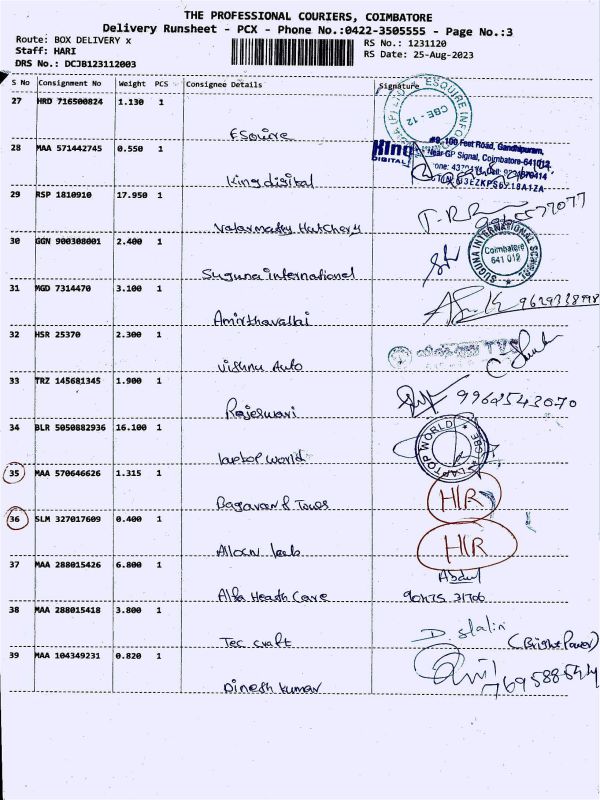 THE PROFESSIONAL COURIERS, COIMBATORE
Delivery Runsheet - PCX - Phone No.:0422-3505555 - Page No.:3
Route: BOX DELIVERY x
RS No.: 1231120
Staff: HARI
RS Date: 25-Aug-2023
DRS No.: DCJB123112003
S No Consignment No Weight PCS Consignee Details Signature
27 HRD 716500824 1.130 1
Esquire
CBE - 12
28 MAA 571442745 0.550 1
King digital
King
DIGITAL
#9, 100 Feet Road, Gandhipuram,
Near GP Signal, Coimbatore-641012.
29 RSP 1810910 17.950 1
Valarmathy Hatchery
30 GGN 900308001 2.400 1
Suguna international
SUGUNA INTERNATIONAL SCHOOL
Coimbatore
641 012
31 MGD 7314470 3.100 1
Amirthavallai
32 HSR 25370 2.300 1
Vishnu Auto
TVS
33 TRZ 145681345 1.900 1
Rajeswari
9962543070
34 BLR 5050882936 16.100 1
laptop world
LAPTOP WORLD
35 MAA 570646626 1.315 1
Ragavan & Tours
HIR
36 SLM 327017609 0.400 1
HIR
37 MAA 288015426 6.800 1
Alfa Health Care
Abdul
38 MAA 288015418 3.800 1
Tec craft
D. Stalin
(Bright Power)
39 MAA 104349231 0.820 1
Dinesh kumar